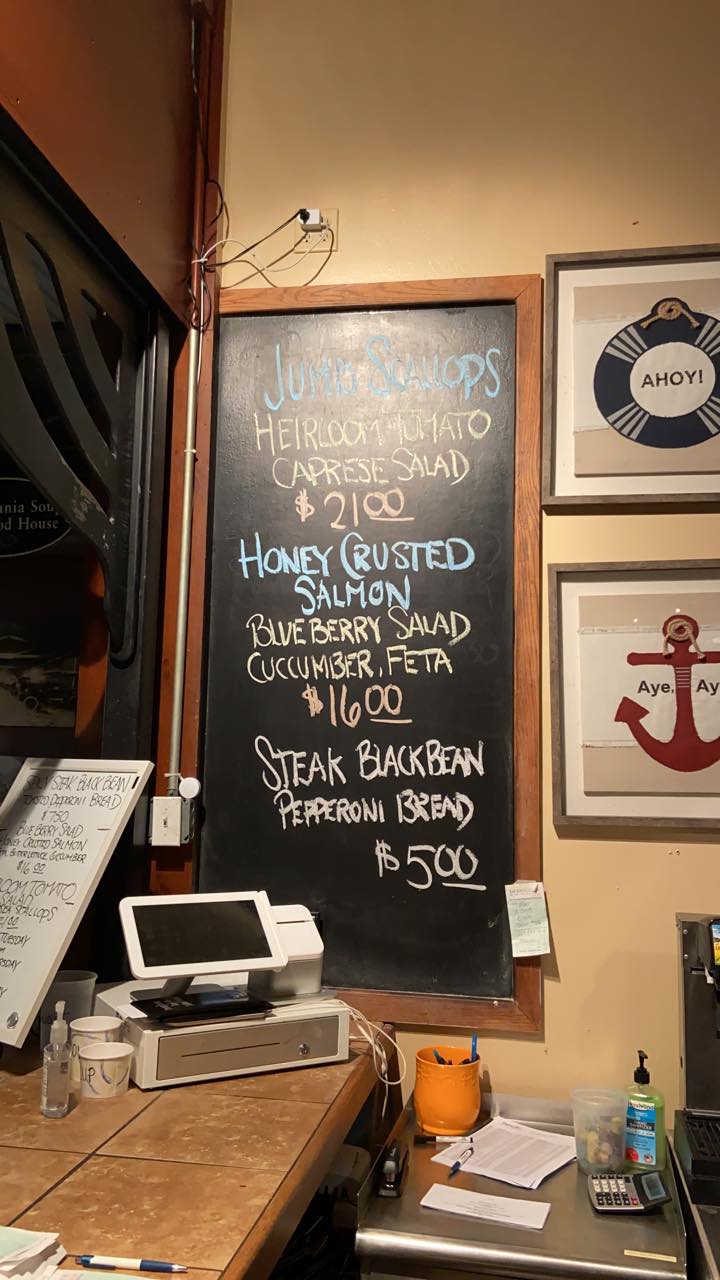 JUMBO SCALLOPS
HEIRLOOM TOMATO
CAPRESE SALAD
$ 21 00
HONEY CRUSTED
SALMON
BLUEBERRY SALAD
CUCCUMBER, FETA
$ 16 00
STEAK BLACKBEAN
PEPPERONI BREAD
$ 5 00
AHOY!
Aye, Ay
House
STEAK BLACK BEAN
PEPPERONI BREAD
$ 7 50
BLUEBERRY SALAD
HONEY CRUSTED SALMON
CUCUMBER
$16 00
TOMATO
SALAD
SCALLOPS
TUESDAY